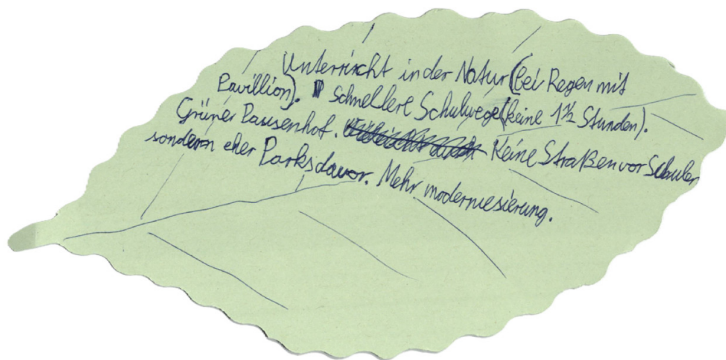 Unterricht in der Natur (bei Regen mit
Pavillion). Schnellere Schulwege (keine 1½ Stunden).
Grüner Pausenhof. Keine Straßen vor Schulen
sondern eher Parks davor. Mehr moderniesierung.